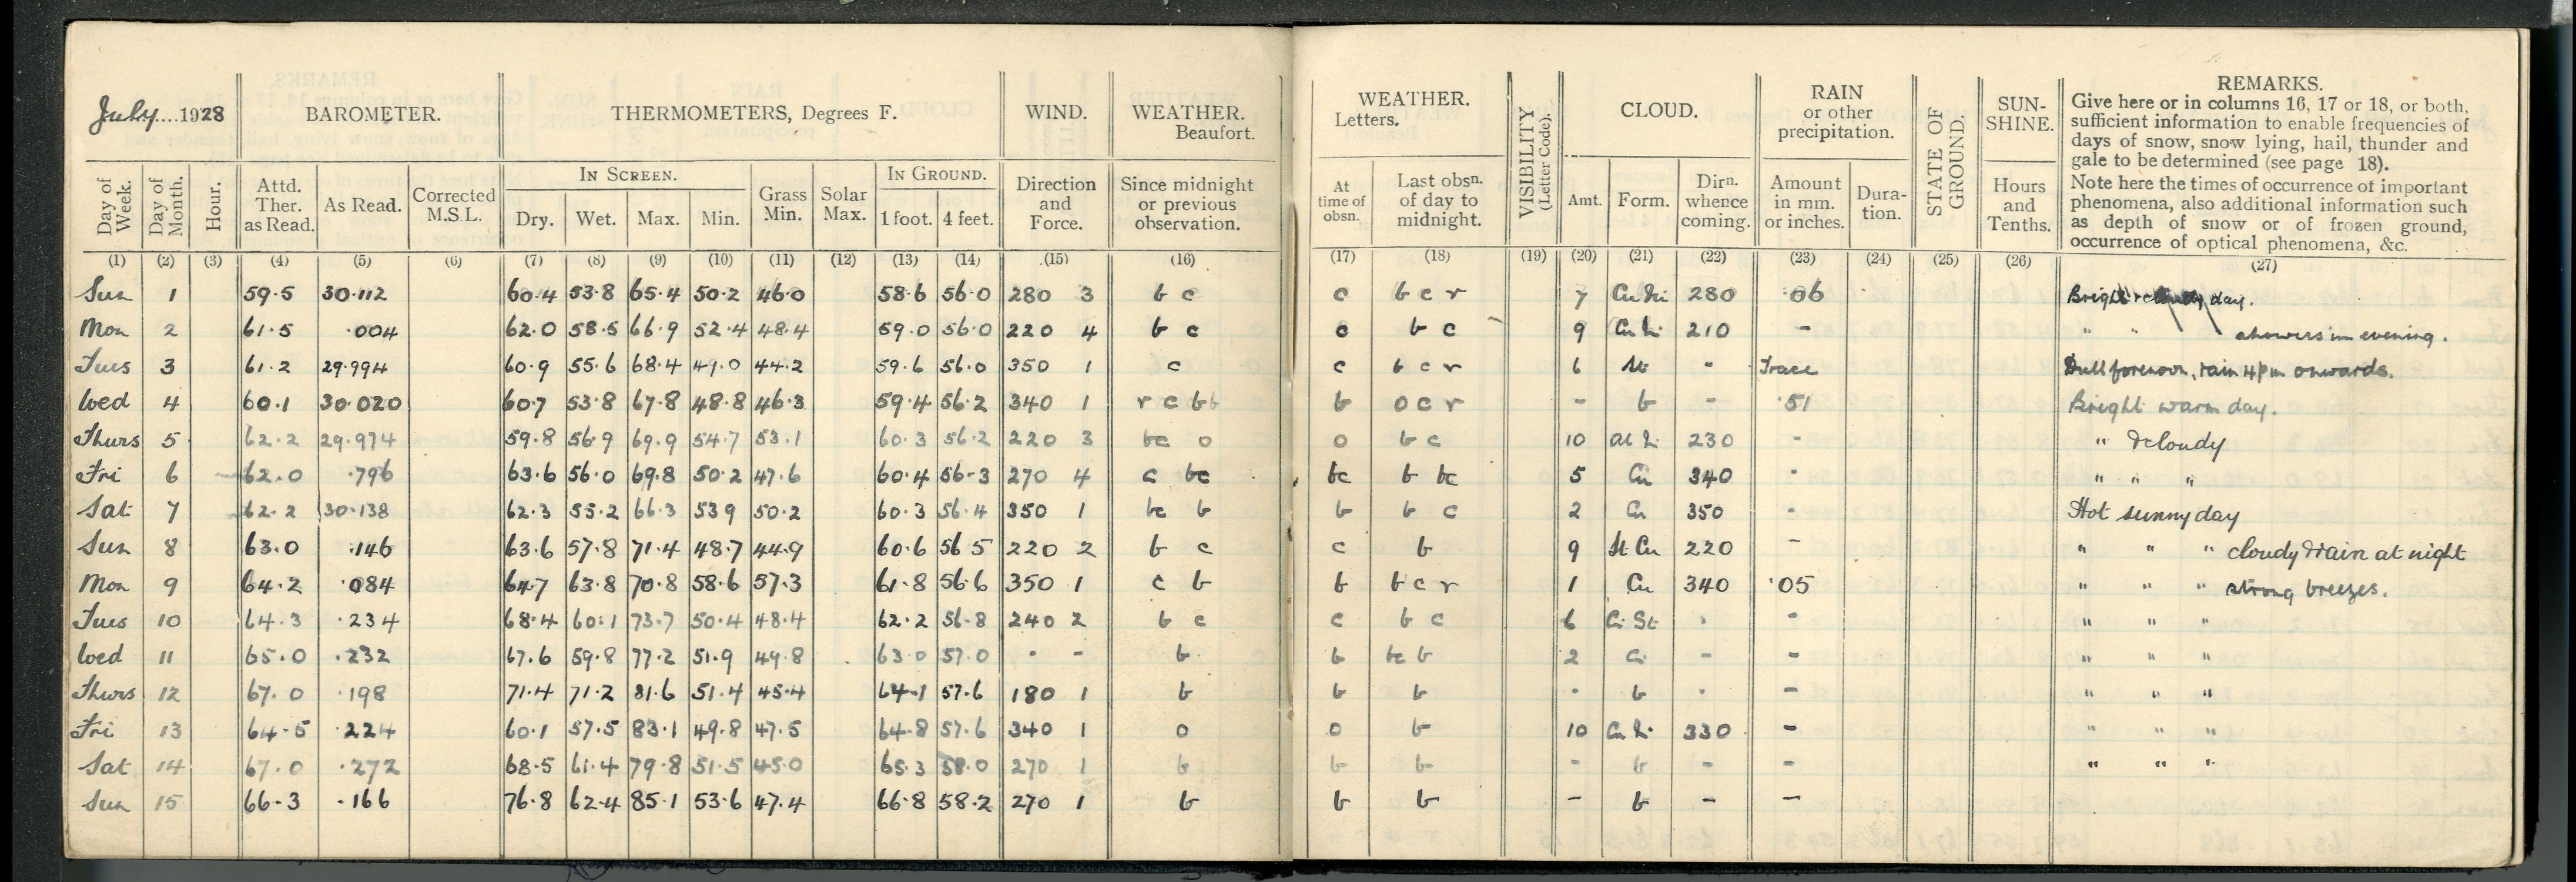 July....1928 BAROMETER. THERMOMETERS, Degrees F. WIND. WEATHER. Beaufort. WEATHER. Letters. VISIBILITY (Letter Code). CLOUD. RAIN or other precipitation. STATE OF GROUND. SUN-SHINE. REMARKS.
Give here or in columns 16, 17 or 18, or both,
sufficient information to enable frequencies of
days of snow, snow lying, hail, thunder and
gale to be determined (see page 18).
Note here the times of occurrence of important
phenomena, also additional information such
as depth of snow or of frozen ground,
occurrence of optical phenomena, &c.
Day of Week. Day of Month. Hour. Attd. Ther. as Read. As Read. Corrected M.S.L. IN SCREEN. Dry. Wet. Max. Min. Grass Min. Solar Max. IN GROUND. 1 foot. 4 feet. Direction and Force. Since midnight or previous observation. At time of obsn. Last obsn. of day to midnight. Amt. Form. Dirn. whence coming. Amount in mm. or inches. Dura-tion. Hours and Tenths.
(1) (2) (3) (4) (5) (6) (7) (8) (9) (10) (11) (12) (13) (14) (15) (16) (17) (18) (19) (20) (21) (22) (23) (24) (25) (26) (27)
Sun 1 59.5 30.112 60.4 53.8 65.4 50.2 46.0 58.6 56.0 280 3 b c c b c r 7 Cu Ni 280 .06 Bright day.
Mon 2 61.5 .004 62.0 58.5 66.9 52.4 48.4 59.0 56.0 220 4 b c c b c 9 Cu Ni 210 - " " showers in evening.
Tues 3 61.2 29.994 60.9 55.6 68.4 49.0 44.2 59.6 56.0 350 1 c c b c r 6 St - Trace Dull forenoon, rain 4pm onwards.
Wed 4 60.1 30.020 60.7 53.8 67.8 48.8 46.3 59.4 56.2 340 1 r c b b b o c r - b - .51 Bright warm day.
Thurs 5 62.2 29.974 59.8 56.9 69.9 54.7 53.1 60.3 56.2 220 3 bc o o b c 10 230 - " & cloudy
Fri 6 62.0 .796 63.6 56.0 69.8 50.2 47.6 60.4 56.3 270 4 c bc bc b bc 5 Cu 340 - " " "
Sat 7 62.2 30.138 62.3 55.2 66.3 53 9 50.2 60.3 56.4 350 1 bc b b b c 2 Cu 350 - Hot sunny day
Sun 8 63.0 .146 63.6 57.8 71.4 48.7 44.9 60.6 56 5 220 2 b c c b 9 St Cu 220 - " " " cloudy & rain at night
Mon 9 64.2 .084 64.7 63.8 70.8 58.6 57.3 61.8 56.6 350 1 c b b b c r 1 Cu 340 .05 " " " strong breezes.
Tues 10 64.3 .234 68.4 60.1 73.7 50.4 48.4 62.2 56.8 240 2 b c c b c 6 Ci St - - " " "
Wed 11 65.0 .232 67.6 59.8 77.2 51.9 49.8 63.0 57.0 - - b b bc b 2 Ci - - " " "
Thurs 12 67.0 .198 71.4 71.2 81.6 51.4 45.4 64.1 57.6 180 1 b b b - b - - " " "
Fri 13 64.5 .224 60.1 57.5 83.1 49.8 47.5 64.8 57.6 340 1 o o b 10 Cu Ni 330 - " " "
Sat 14 67.0 .272 68.5 61.4 79.8 51.5 45.0 65.3 58.0 270 1 b b b - b - - " " "
Sun 15 66.3 .166 76.8 62.4 85.1 53.6 47.4 66.8 58.2 270 1 b b b - b - -